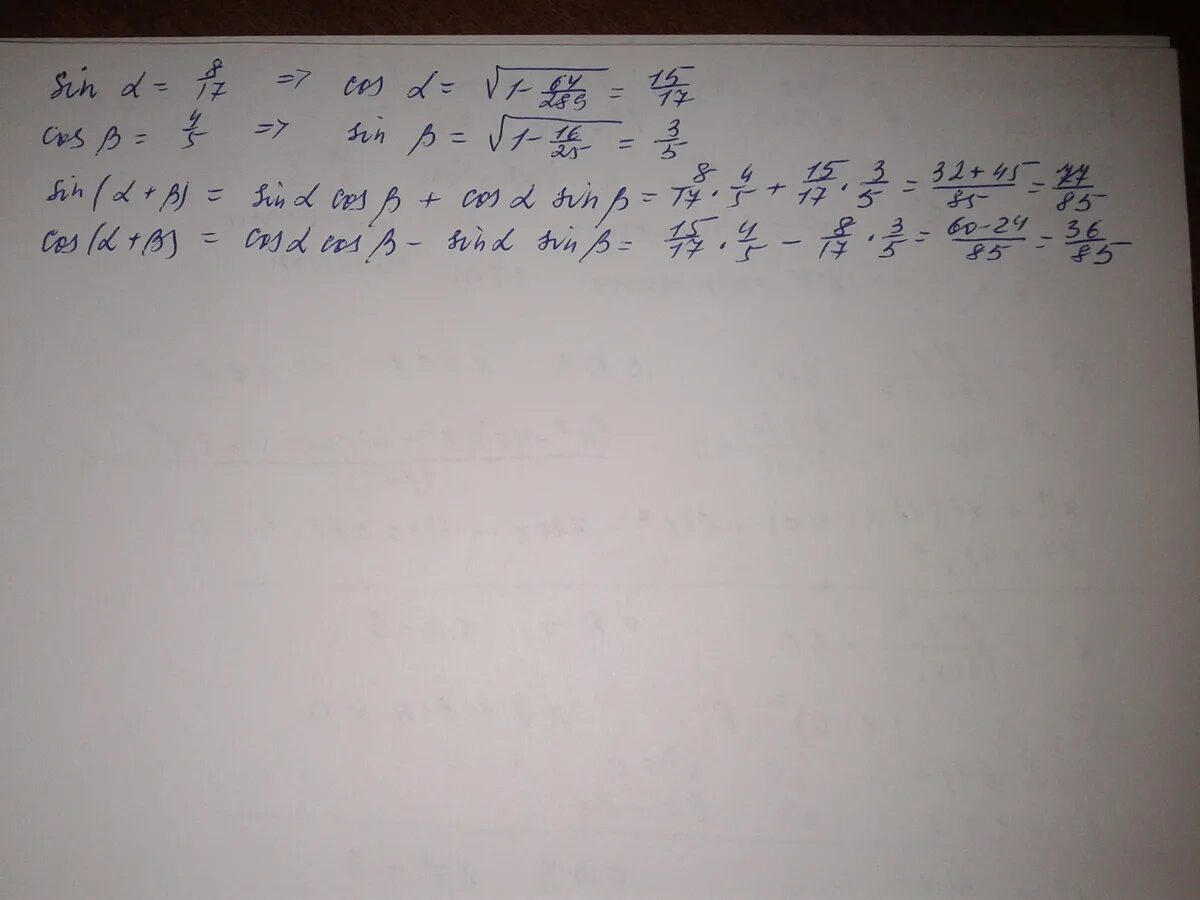 sin α = 8/17 => cos α = √(1 - 64/289) = 15/17
cos β = 4/5 => sin β = √(1 - 16/25) = 3/5
sin(α + β) = sinα cos β + cos α sin β = 8/17 · 4/5 + 15/17 · 3/5 = (32 + 45)/85 = 77/85
cos(α + β) = cosα cos β - sinα sin β = 15/17 · 4/5 - 8/17 · 3/5 = (60 - 24)/85 = 36/85